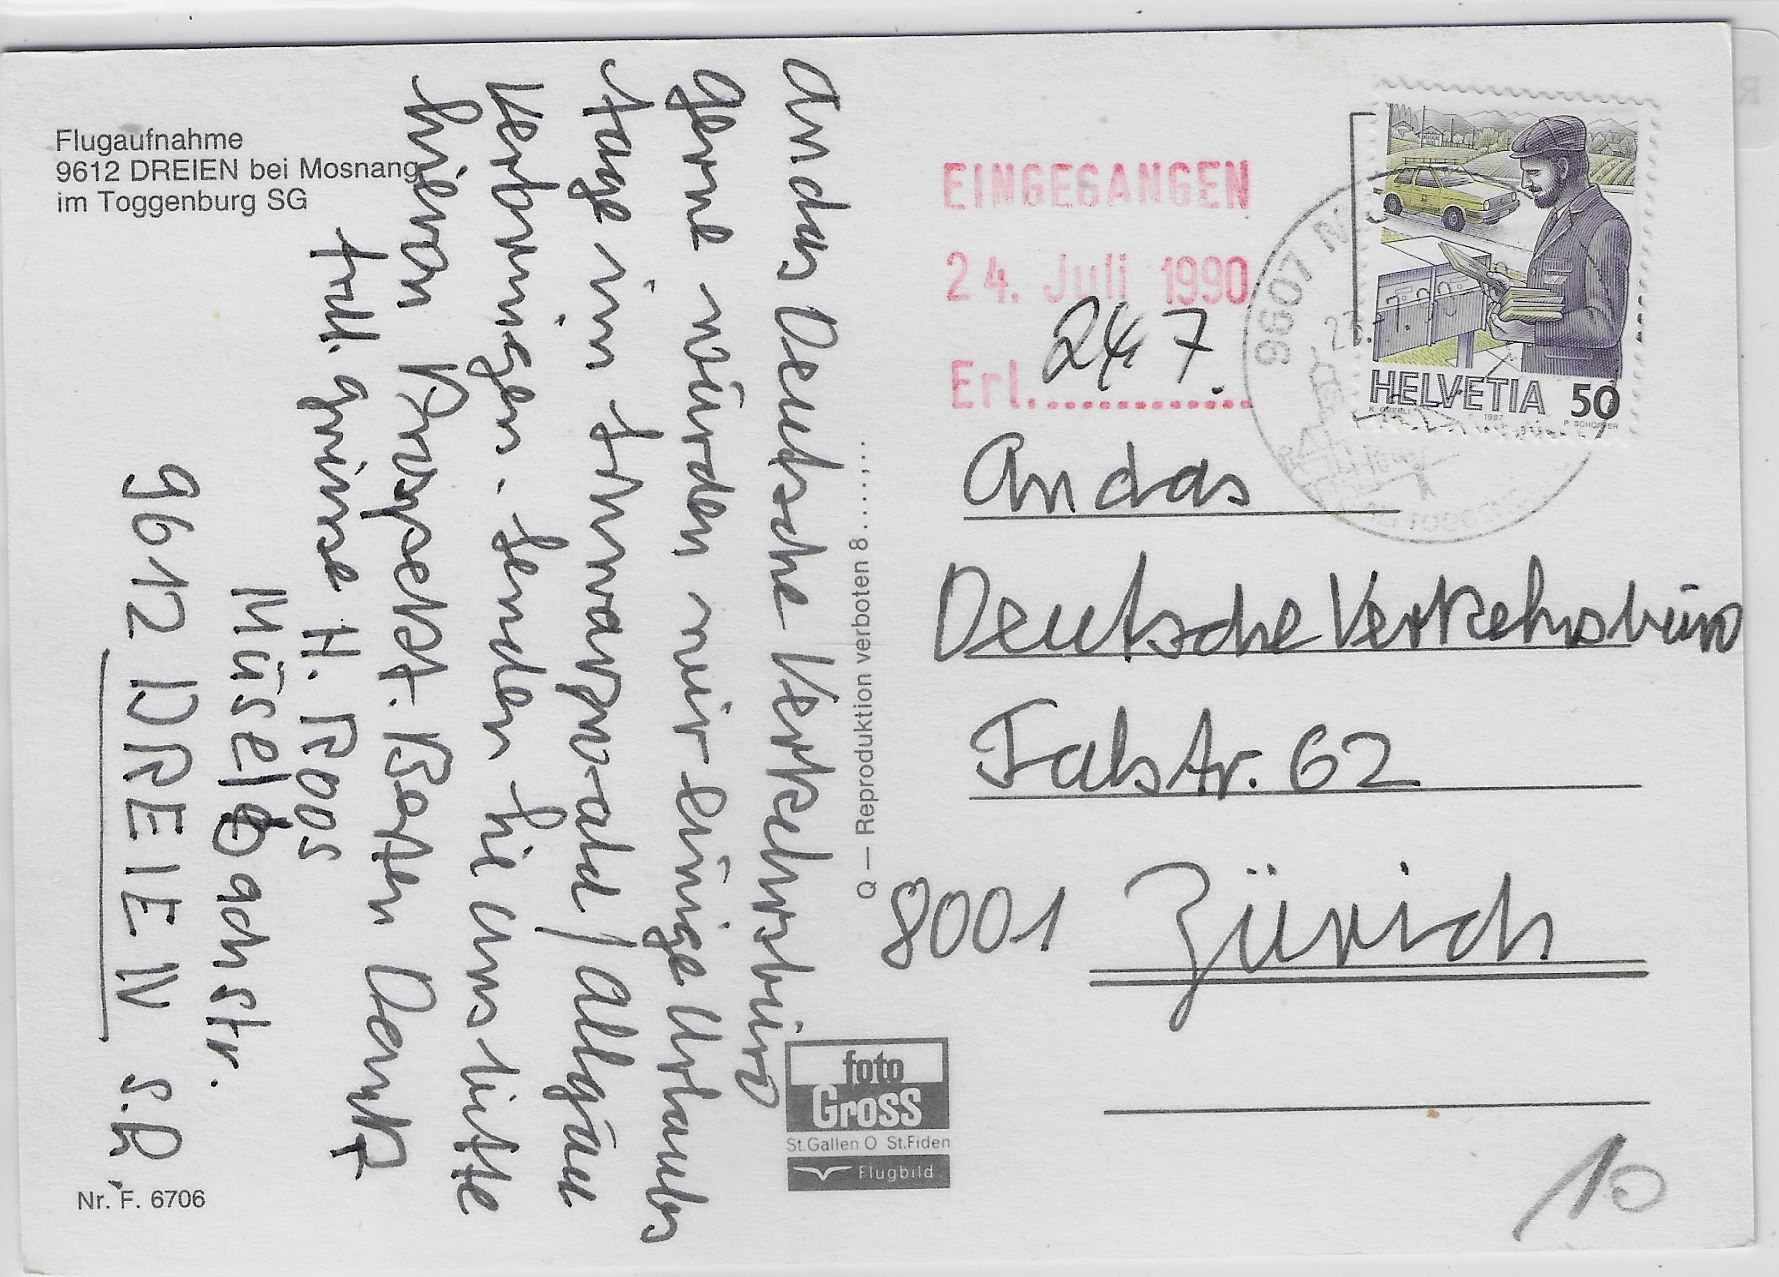 Flugaufnahme
9612 DREIEN bei Mosnang
im Toggenburg SG
An das Deutsche Verkehrsbüro
Gerne würden wir einige Urlaubs
tage im Schwarzwald / Allgäu
Verbringen. Senden Sie uns bitte
hievon Prospekt. Besten Dank
frdl. grüsse H. Roos
Müselbachstr.
9612 DREIEN S.G.
Nr. F. 6706
Q — Reproduktion verboten 8
foto
GROSS
St.Gallen O St.Fiden
Flugbild
EINGEGANGEN
24. Juli 1990
24. 7.
Erl.
9607
HELVETIA 50
1987
An das
Deutsche Verkehrsbüro
Talstr. 62
8001 Zürich
10